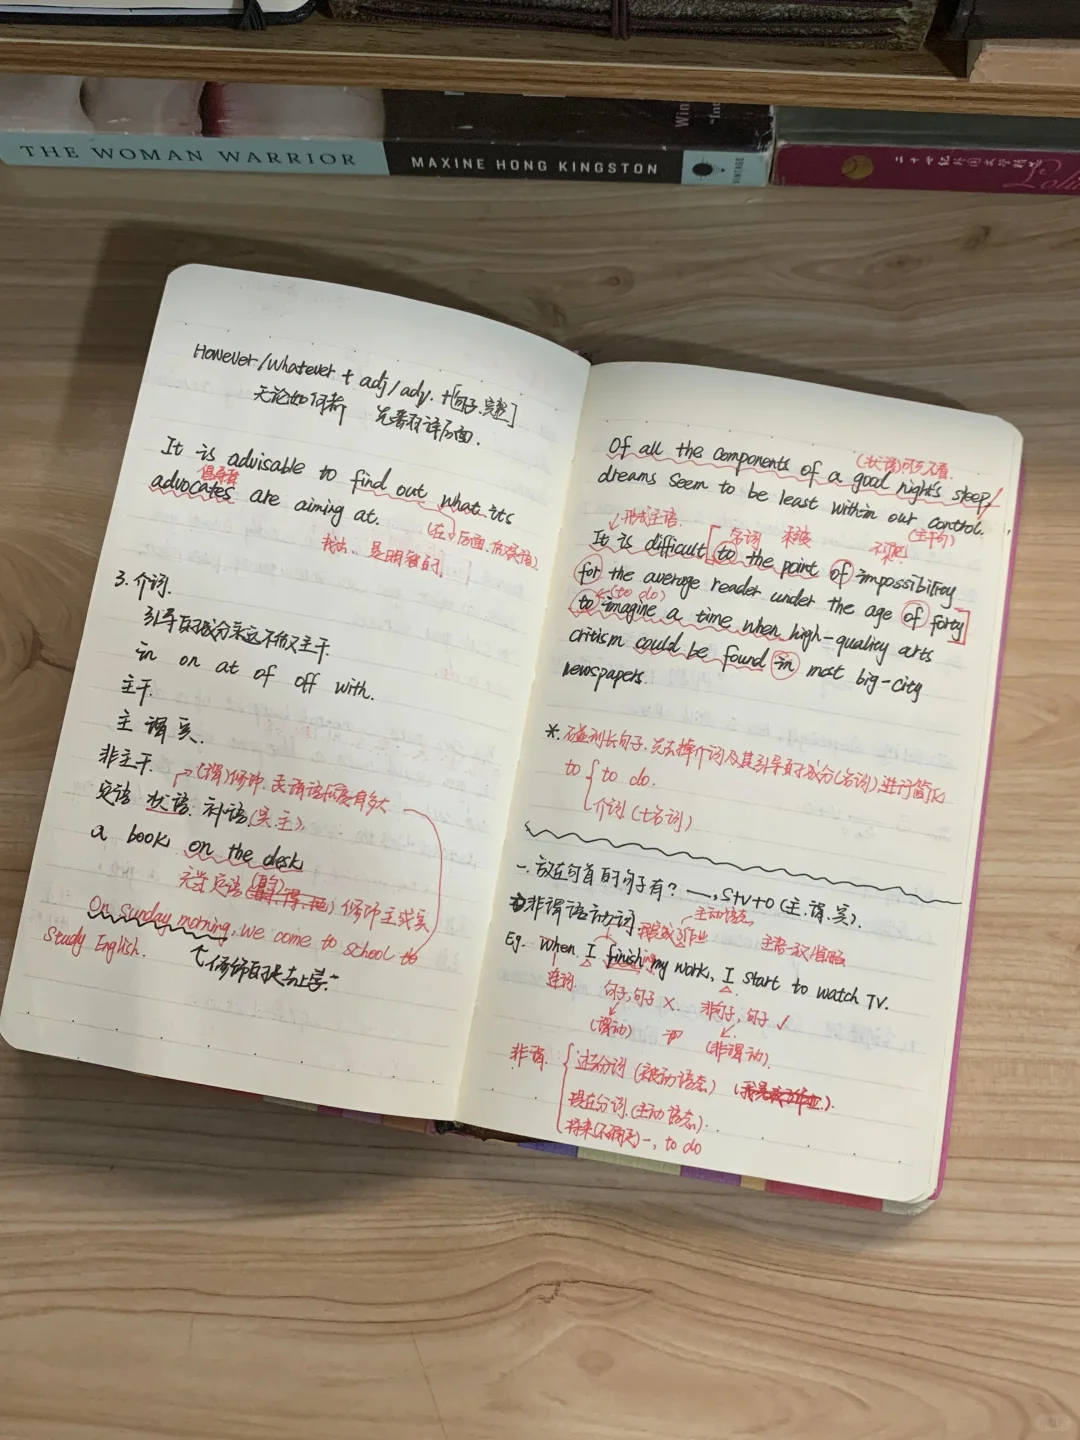 THE WOMAN WARRIOR
MAXINE HONG KINGSTON
VINTAGE
二十世纪外国文学精
However/Whatever + adj/adv. +[句子.完整]
无论如何都 先看有没后面.
It is advisable to find out what its
倡导者
advocates are aiming at.
(在 后面.
找出.. 是明智的
3. 介词.
引导的成分永远不做主干.
in on at of off with.
主干.
主 谓 宾.
非主干.
(谓)修饰.
定语 状语. 补语(宾.主).
a book on the desk
定语 修饰主或宾
On Sunday morning, we come to school to
study English.
修饰的是去上学.
Of all the components of a good night's sleep/
(状语)可不看.
dreams seem to be least within our control.
形式主语. 名词 (主干部)
It is difficult to the point of impossibility
for the average reader under the age of forty
(to do)
to imagine a time when high-quality arts
critism could be found in most big-city
newspapers.
*. 碰到长句子,先去掉介词及其引导的成分(名词),进行简化
to to do.
介词 (+名词)
一. 放在句首的句子有? —, S+V+O (主.谓.宾).
主动语态
①非谓语动词 我完成了作业 主语一致 省略
Eg. When I finish my work, I start to watch TV.
ing
连词. 句子,句子 × 非句子,句子 ✓
(谓动) (非谓动).
非谓. 过去分词 (被动语态)
现在分词.(主动语态)
将来(不确定)—, to do